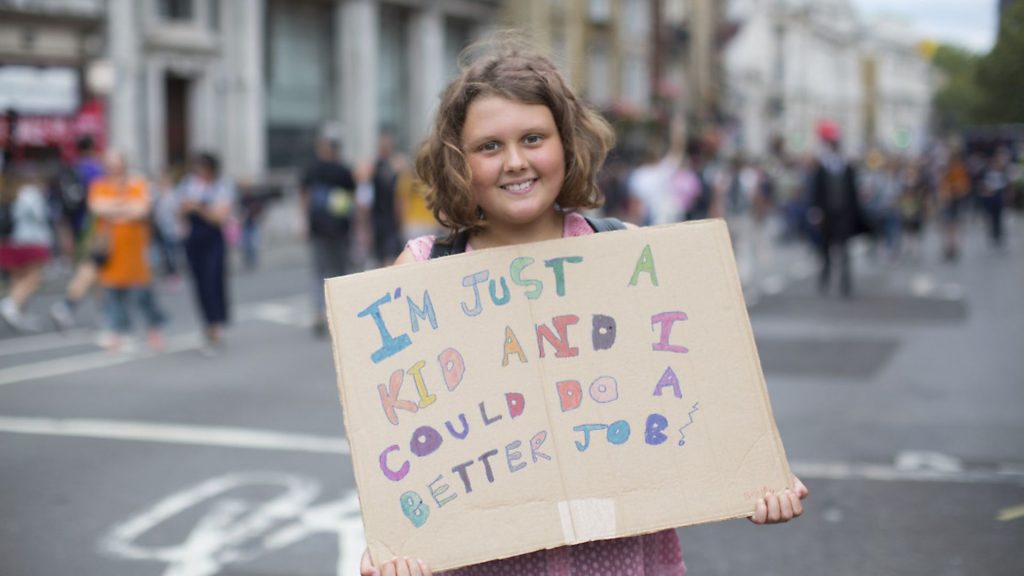 I'M JUST A
KID AND I
COULD DO A
BETTER JOB!